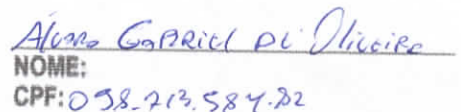 Alvaro Gabriel de Oliveira
NOME:
CPF: 098.713.584.82